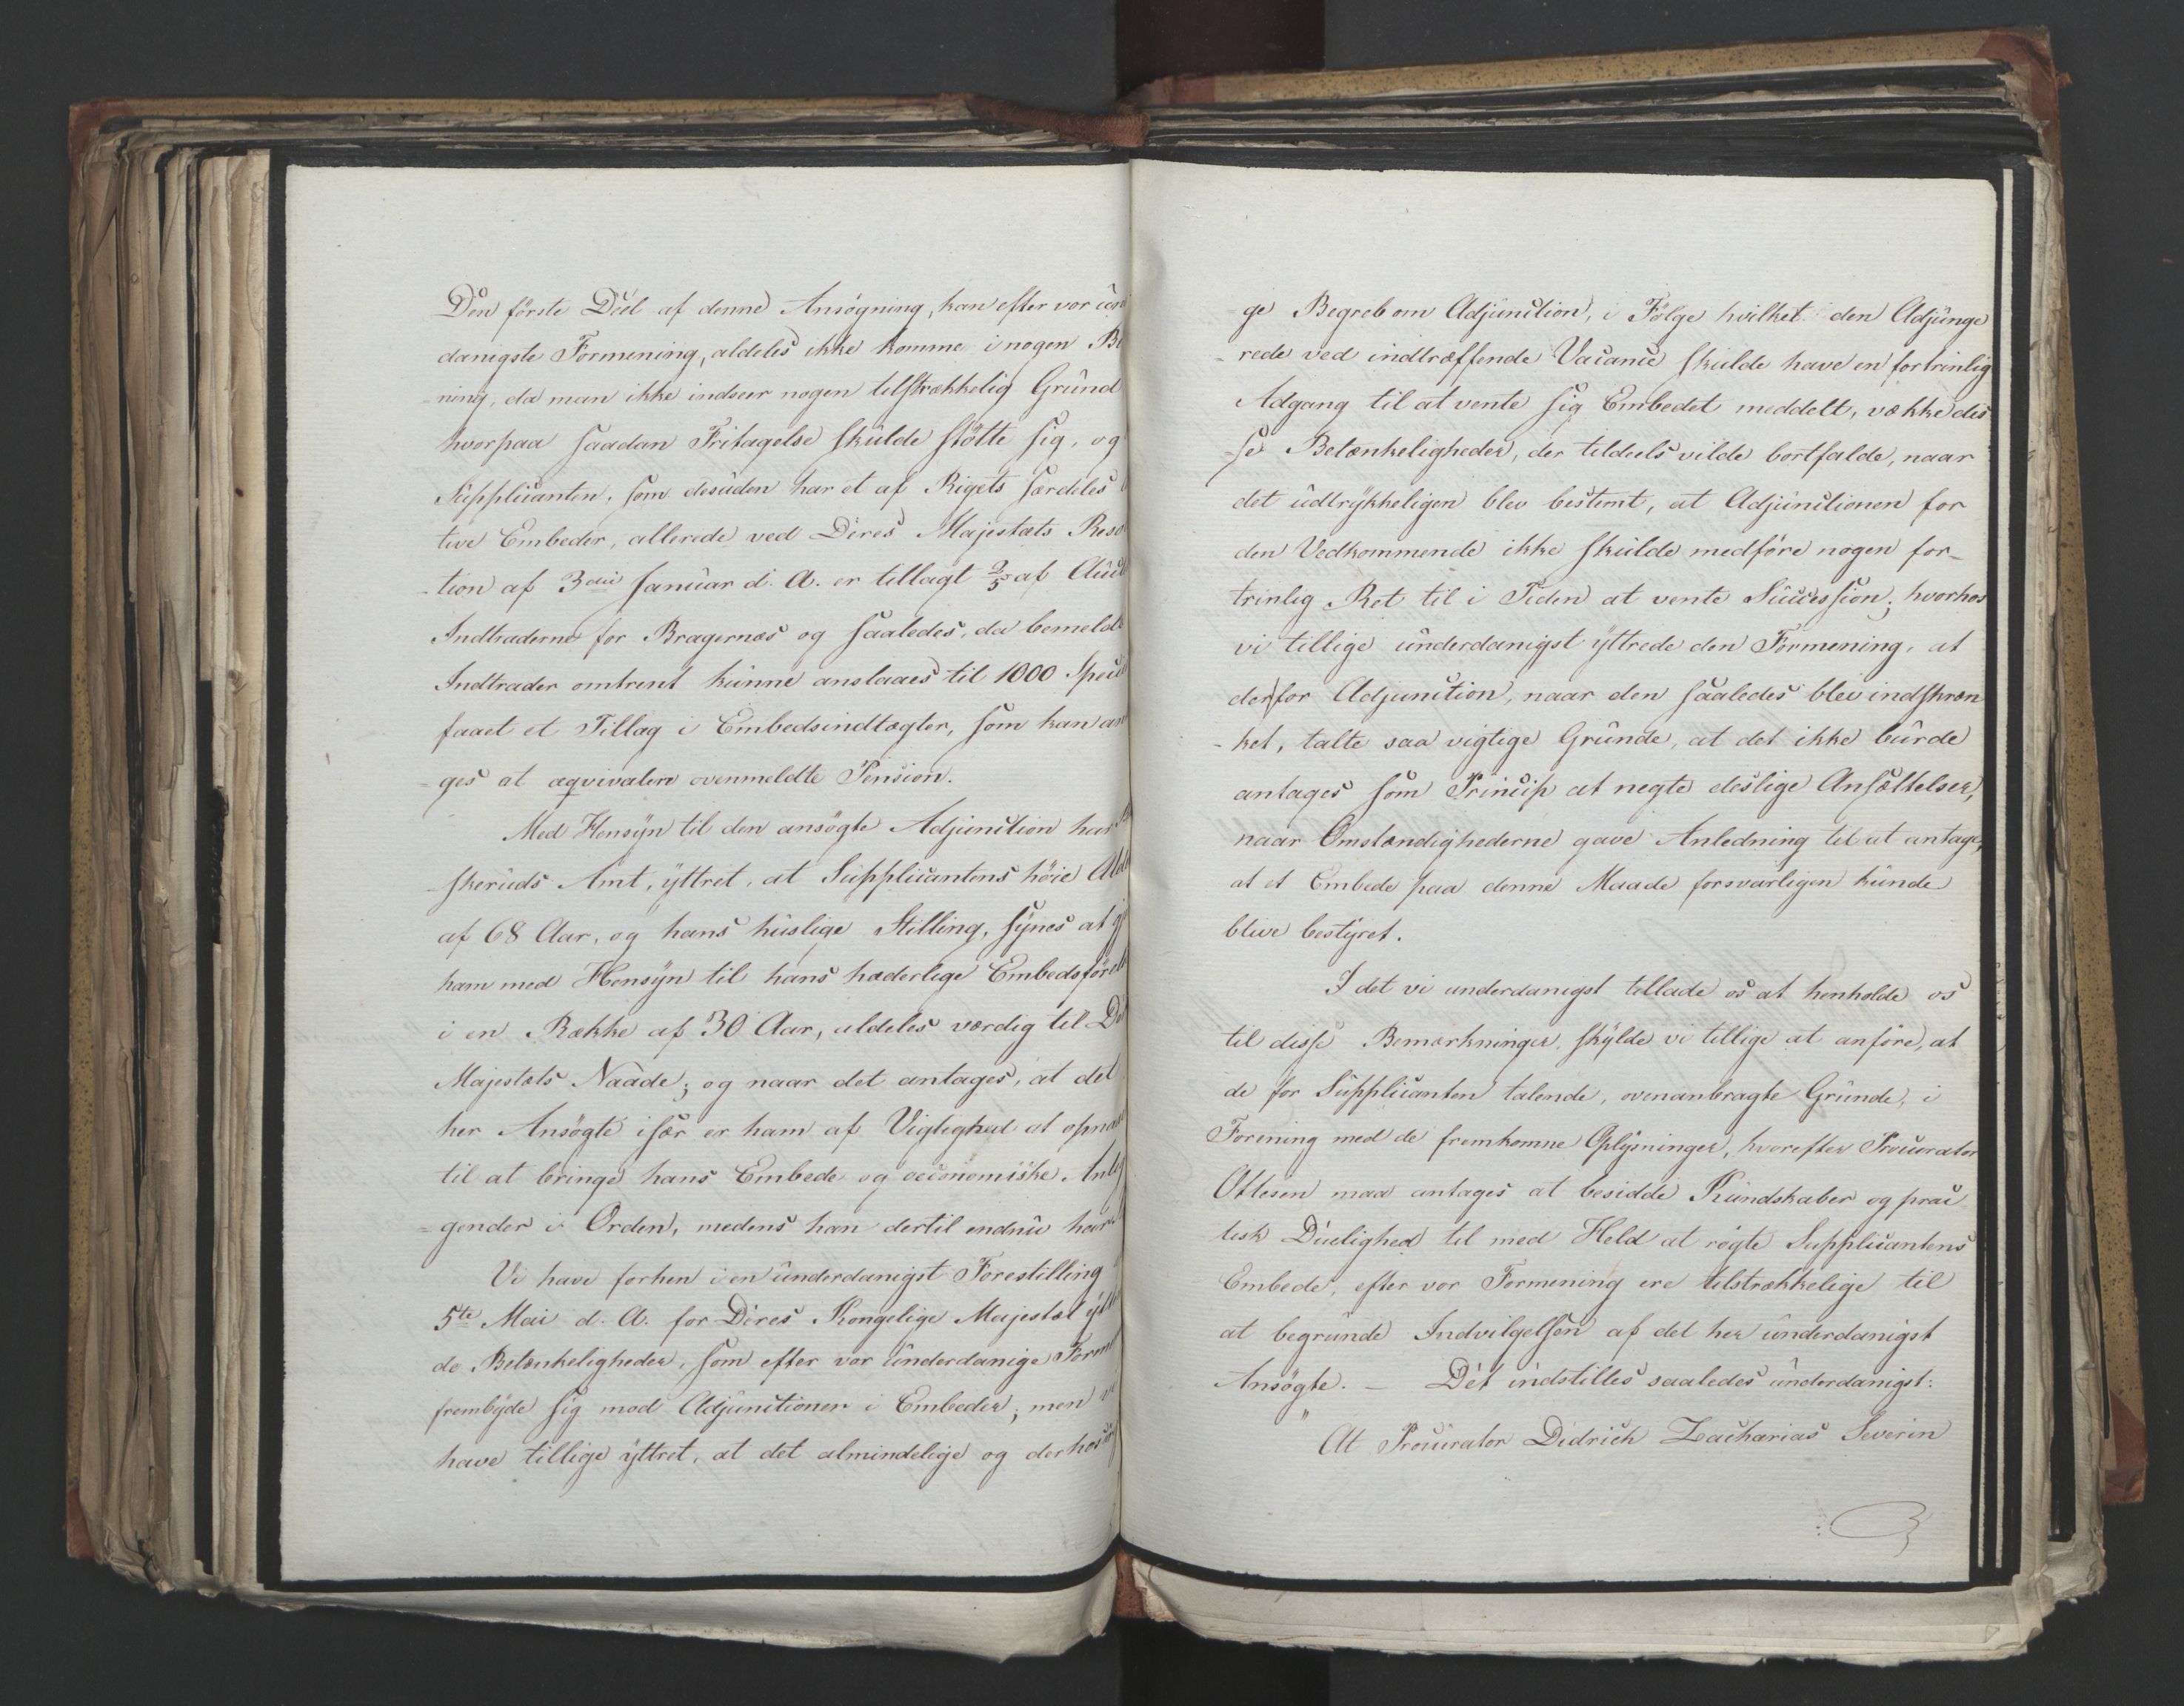 Den förste Deel af denne Ansøgning, kan efter vor un
danigste Formening, aldeles ikke komme i nogen Be
-ning, da man ikke indseer nogen tilstrækkelig Grund
hvorpaa saadan Fritagelse skulde støtte sig, og
Supplicanten, som desuden har et af Rigets særdeles
tive Embeder, allerede ved Deres Majestæts Reso
-tion af 3die Januar d. A. er tillagt 2/5 af Auct
Indtraderne for Bragernæs og saaledes, da bemeldt
Indtrader omtrent kunne anslaaes til 1000 Speci
faaet et Tillæg i Embedsindtægter, som kan an
-ges at æqvivalere ovenmeldte Pension.
Med Hensyn til den ansøgte Adjunction har
-skeruds Amt, yttret, at Supplicantens høie Ald
af 68 Aar, og hans huslige Stilling, synes at gj
ham med Hensyn til hans hæderlige Embedsførel
i en Række af 30 Aar, aldeles værdig til De
Majestæts Naade; og naar det antages, at det
her Ansøgte især er ham af Vigtighed at opnaae
til at bringe hans Embede og oeconomiske Anlig
-gender i Orden, medens han dertil endnu har
Vi have forhen i en underdanigst Forestilling
5te Mai d. A. for Deres Kongelige Majestæt ytt
de Betænkeligheder, som efter vor underdanige Form
frembyde sig mod Adjunctioner i Embeder; men vi
have tillige yttret, at det almindelige og derhos
ge Begreb om Adjunction, i Følge hvilket den Adjunge
-rede ved indtræffende Vacance skulde have en fortrinlig
Adgang til at vente sig Embedet meddelt, vække dis
-se Betænkeligheder, der tildeels vilde bortfalde, naar
det udtrykkeligen blev bestemt, at Adjunctionen for
den Vedkommende ikke skulde medføre nogen for-
trinlig Ret til i Tiden at vente Succession; hvorhos
vi tillige underdanigst yttrede den Formening, at
der for Adjunction, naar den saaledes blev indskræn
-ket, talte saa vigtige Grunde, at det ikke burde
antages som Princip at negte deslige Ansættelser,
naar Omstændighederne gave Anledning til at antage,
at et Embede paa denne Maade forsvarligen kunde
blive bestyret.
I det vi underdanigst tillade os at henholde os
til disse Bemærkninger, skylde vi tillige at anføre, at
de for Supplicanten talende, ovenanbragte Grunde, i
Forening med de fremkomne Oplysninger, hvorefter Procurator
Ottesen maa antages at besidde Kundskaber og prac
tisk Duelighed til med Held at røgte Supplicantens
Embede, efter vor Formening ere tilstrækkelige til
at begrunde Indvilgelsen af det her underdanigst
Ansøgte. – Det indstilles saaledes underdanigst:
" At Procurator Didrich Zacharias Severin